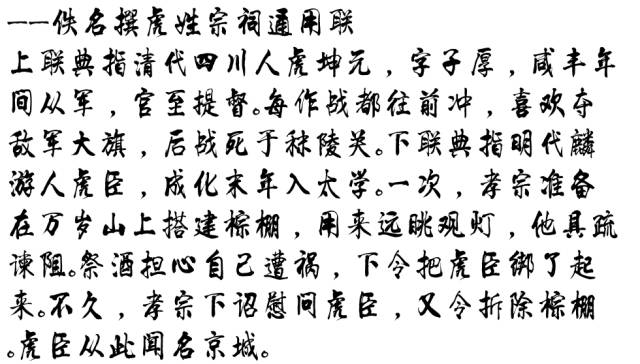 ——佚名撰虎姓宗祠通用联
上联典指清代四川人虎坤元，字子厚，咸丰年
间从军，官至提督。每作战都往前冲，喜欢夺
敌军大旗，后战死于秣陵关。下联典指明代麟
游人虎臣，成化末年入太学。一次，孝宗准备
在万岁山上搭建棕棚，用来远眺观灯，他具疏
谏阻。祭酒担心自己遭祸，下令把虎臣绑了起
来。不久，孝宗下诏慰问虎臣，又令拆除棕棚
。虎臣从此闻名京城。